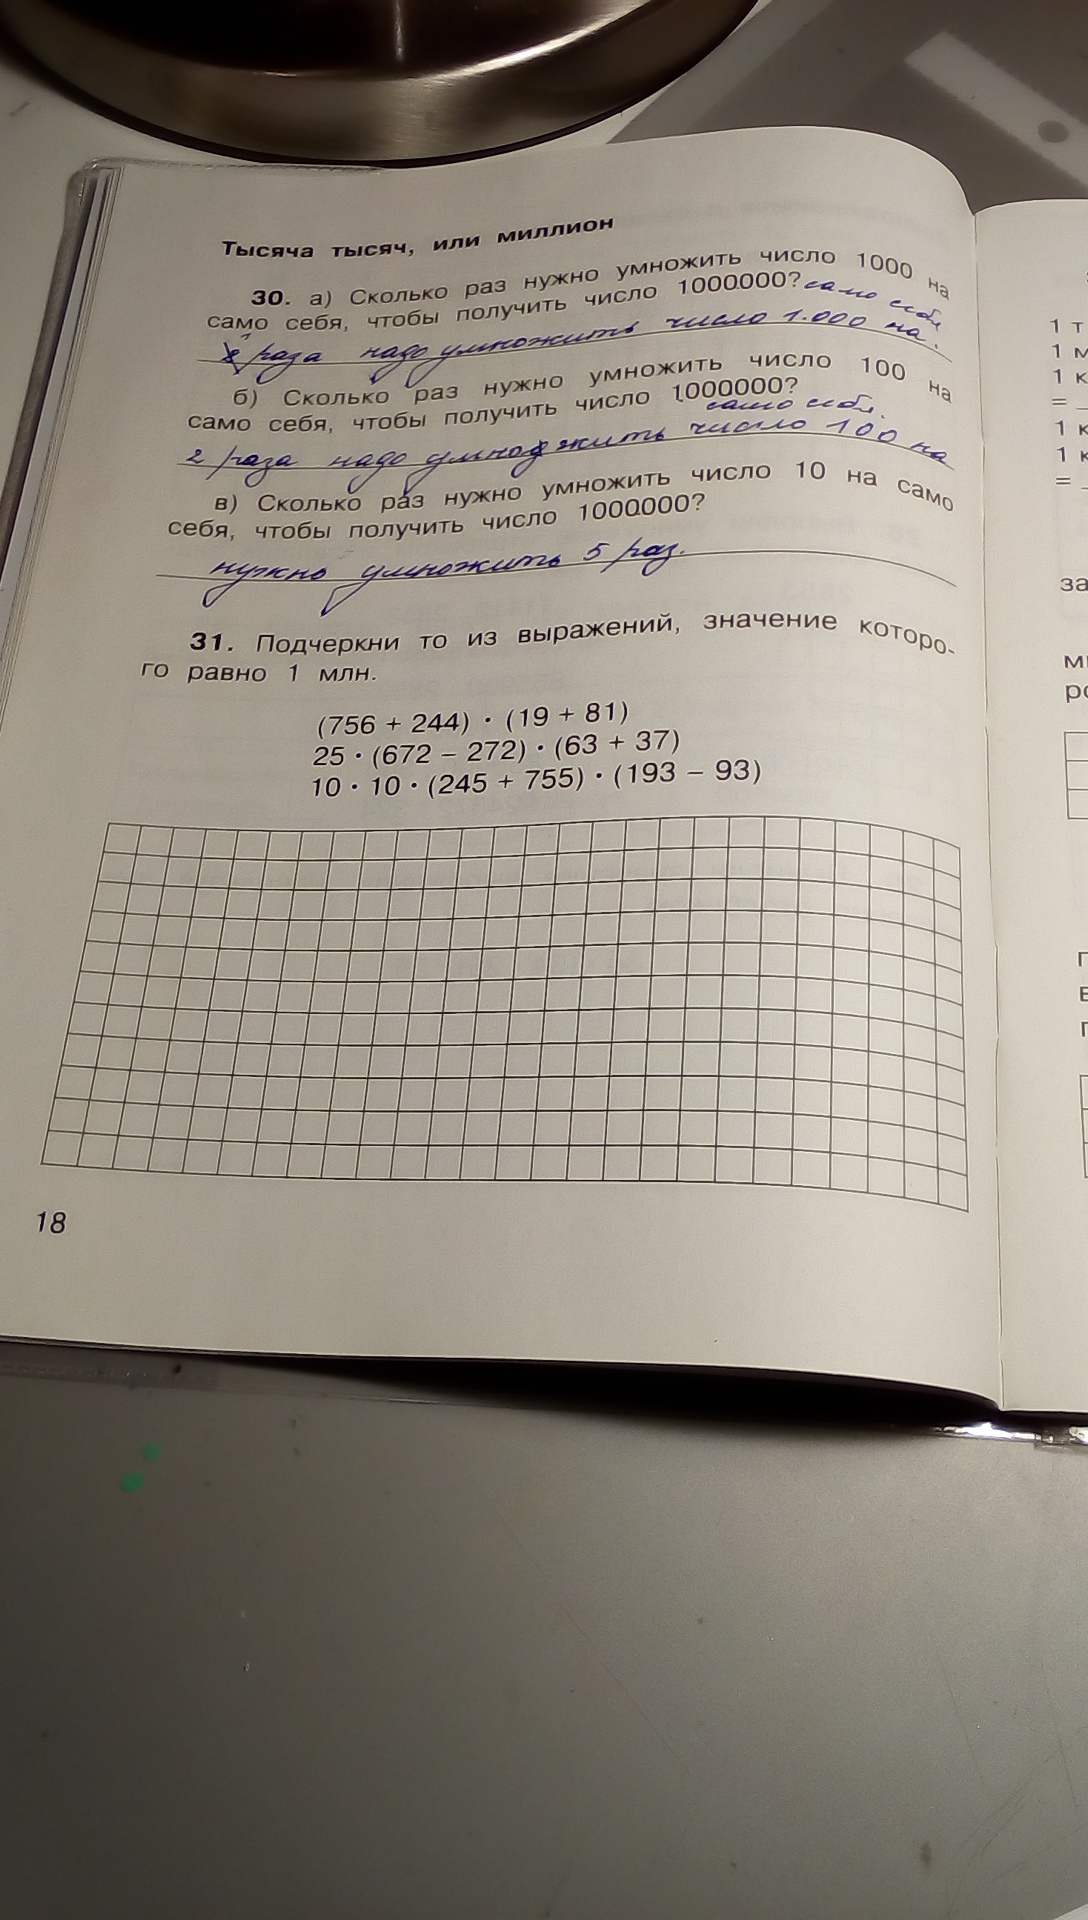 Тысяча тысяч, или миллион
30. а) Сколько раз нужно умножить число 1000 на
само себя, чтобы получить число 1000000? само себя
раза надо умножить число 1.000 на.
б) Сколько раз нужно умножить число 100 на
само себя, чтобы получить число 1000000?
само себя.
2 раза надо умножить число 100 на
в) Сколько раз нужно умножить число 10 на само
себя, чтобы получить число 1000000?
нужно умножить 5 раз.
31. Подчеркни то из выражений, значение которо-
го равно 1 млн.
(756 + 244) · (19 + 81)
25 · (672 – 272) · (63 + 37)
10 · 10 · (245 + 755) · (193 – 93)
18
1 т
1 м
1 к
=
1 к
1 к
=
за